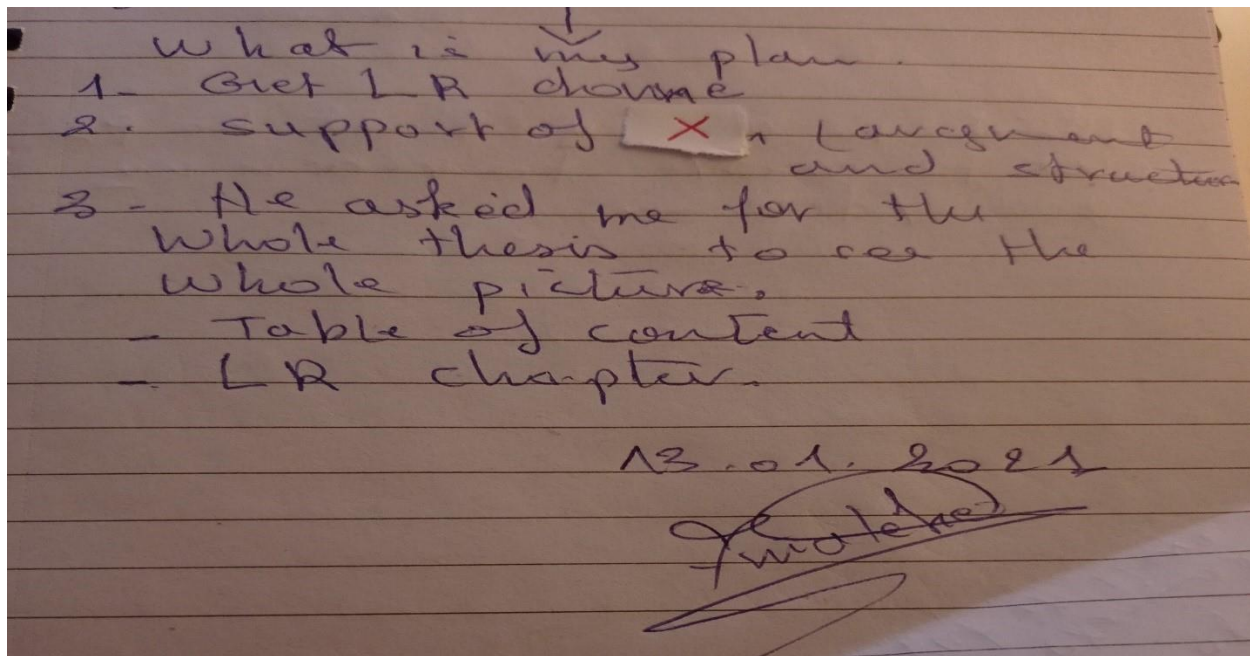 What is my plan.
1- Get LR
2. support of (
and
3- He asked me for the
whole thesis to see the
whole picture.
- Table of content
- LR chapter.
13.01.2021